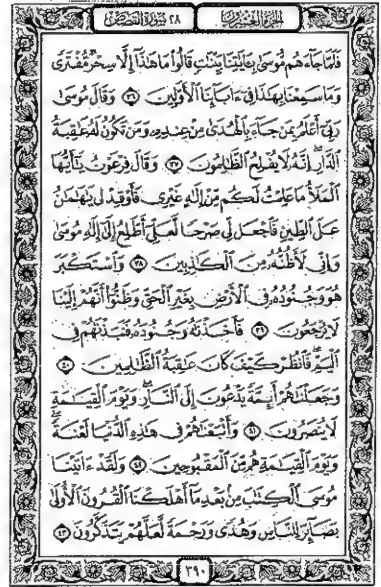 الجزء العشرون
٢٨ سورة القصص
فَلَمَّا جَآءَهُم مُّوسَىٰ بِـَٔايَٰتِنَا بَيِّنَٰتٍ قَالُوا۟ مَا هَٰذَآ إِلَّا سِحْرٌ مُّفْتَرًى
وَمَا سَمِعْنَا بِهَٰذَا فِىٓ ءَابَآئِنَا ٱلْأَوَّلِينَ ٣٦ وَقَالَ مُوسَىٰ
رَبِّىٓ أَعْلَمُ بِمَن جَآءَ بِٱلْهُدَىٰ مِنْ عِندِهِۦ وَمَن تَكُونُ لَهُۥ عَٰقِبَةُ
ٱلدَّارِ ۖ إِنَّهُۥ لَا يُفْلِحُ ٱلظَّٰلِمُونَ ٣٧ وَقَالَ فِرْعَوْنُ يَٰٓأَيُّهَا
ٱلْمَلَأُ مَا عَلِمْتُ لَكُم مِّنْ إِلَٰهٍ غَيْرِى فَأَوْقِدْ لِى يَٰهَٰمَٰنُ
عَلَى ٱلطِّينِ فَٱجْعَل لِّى صَرْحًا لَّعَلِّىٓ أَطَّلِعُ إِلَىٰٓ إِلَٰهِ مُوسَىٰ
وَإِنِّى لَأَظُنُّهُۥ مِنَ ٱلْكَٰذِبِينَ ٣٨ وَٱسْتَكْبَرَ
هُوَ وَجُنُودُهُۥ فِى ٱلْأَرْضِ بِغَيْرِ ٱلْحَقِّ وَظَنُّوٓا۟ أَنَّهُمْ إِلَيْنَا
لَا يُرْجَعُونَ ٣٩ فَأَخَذْنَٰهُ وَجُنُودَهُۥ فَنَبَذْنَٰهُمْ فِى
ٱلْيَمِّ ۖ فَٱنظُرْ كَيْفَ كَانَ عَٰقِبَةُ ٱلظَّٰلِمِينَ ٤٠
وَجَعَلْنَٰهُمْ أَئِمَّةً يَدْعُونَ إِلَى ٱلنَّارِ ۖ وَيَوْمَ ٱلْقِيَٰمَةِ
لَا يُنصَرُونَ ٤١ وَأَتْبَعْنَٰهُمْ فِى هَٰذِهِ ٱلدُّنْيَا لَعْنَةً ۖ
وَيَوْمَ ٱلْقِيَٰمَةِ هُم مِّنَ ٱلْمَقْبُوحِينَ ٤٢ وَلَقَدْ ءَاتَيْنَا
مُوسَى ٱلْكِتَٰبَ مِنۢ بَعْدِ مَآ أَهْلَكْنَا ٱلْقُرُونَ ٱلْأُولَىٰ
بَصَآئِرَ لِلنَّاسِ وَهُدًى وَرَحْمَةً لَّعَلَّهُمْ يَتَذَكَّرُونَ ٤٣
٣٩٠